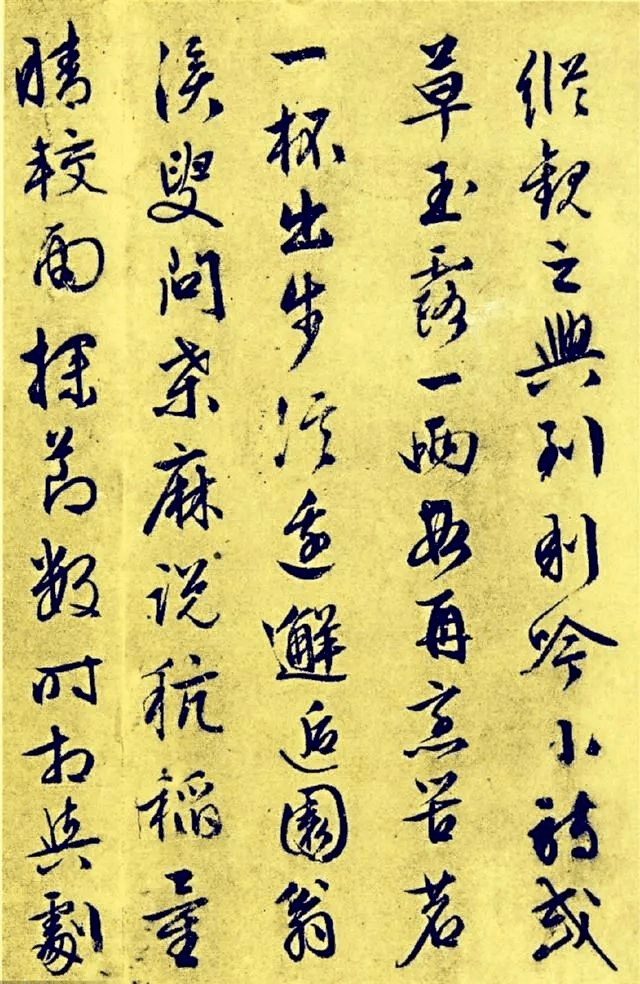 縱觀之興到則吟小詩或
草玉露一兩段再烹苦茗
一杯出步溪邊邂逅園翁
溪叟問桑麻說秔稻量
晴校雨探節數時相與劇